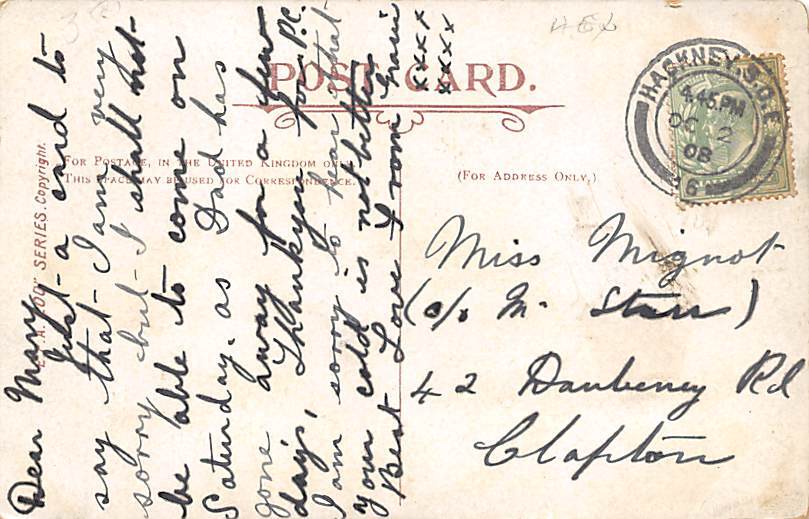 POST CARD.
FOR POSTAGE, IN THE UNITED KINGDOM ONLY,
THIS SPACE MAY BE USED FOR CORRESPONDENCE.
(FOR ADDRESS ONLY,)
SERIES. Copyright.
HACKNEY. S.O.E
4.45 PM
OC 2
08
6
Dear Mary
Just a card to
say that I am very
sorry but I shall not
be able to come on
Saturday. as Dad has
gone away for a few
days, Thankyou for P.C.
I am sorry to hear that
your cold is not better
Best Love from
xxxx
xxxx
Miss Mignot
(c/o M. Starr)
42 Daubeney Rd
Clapton